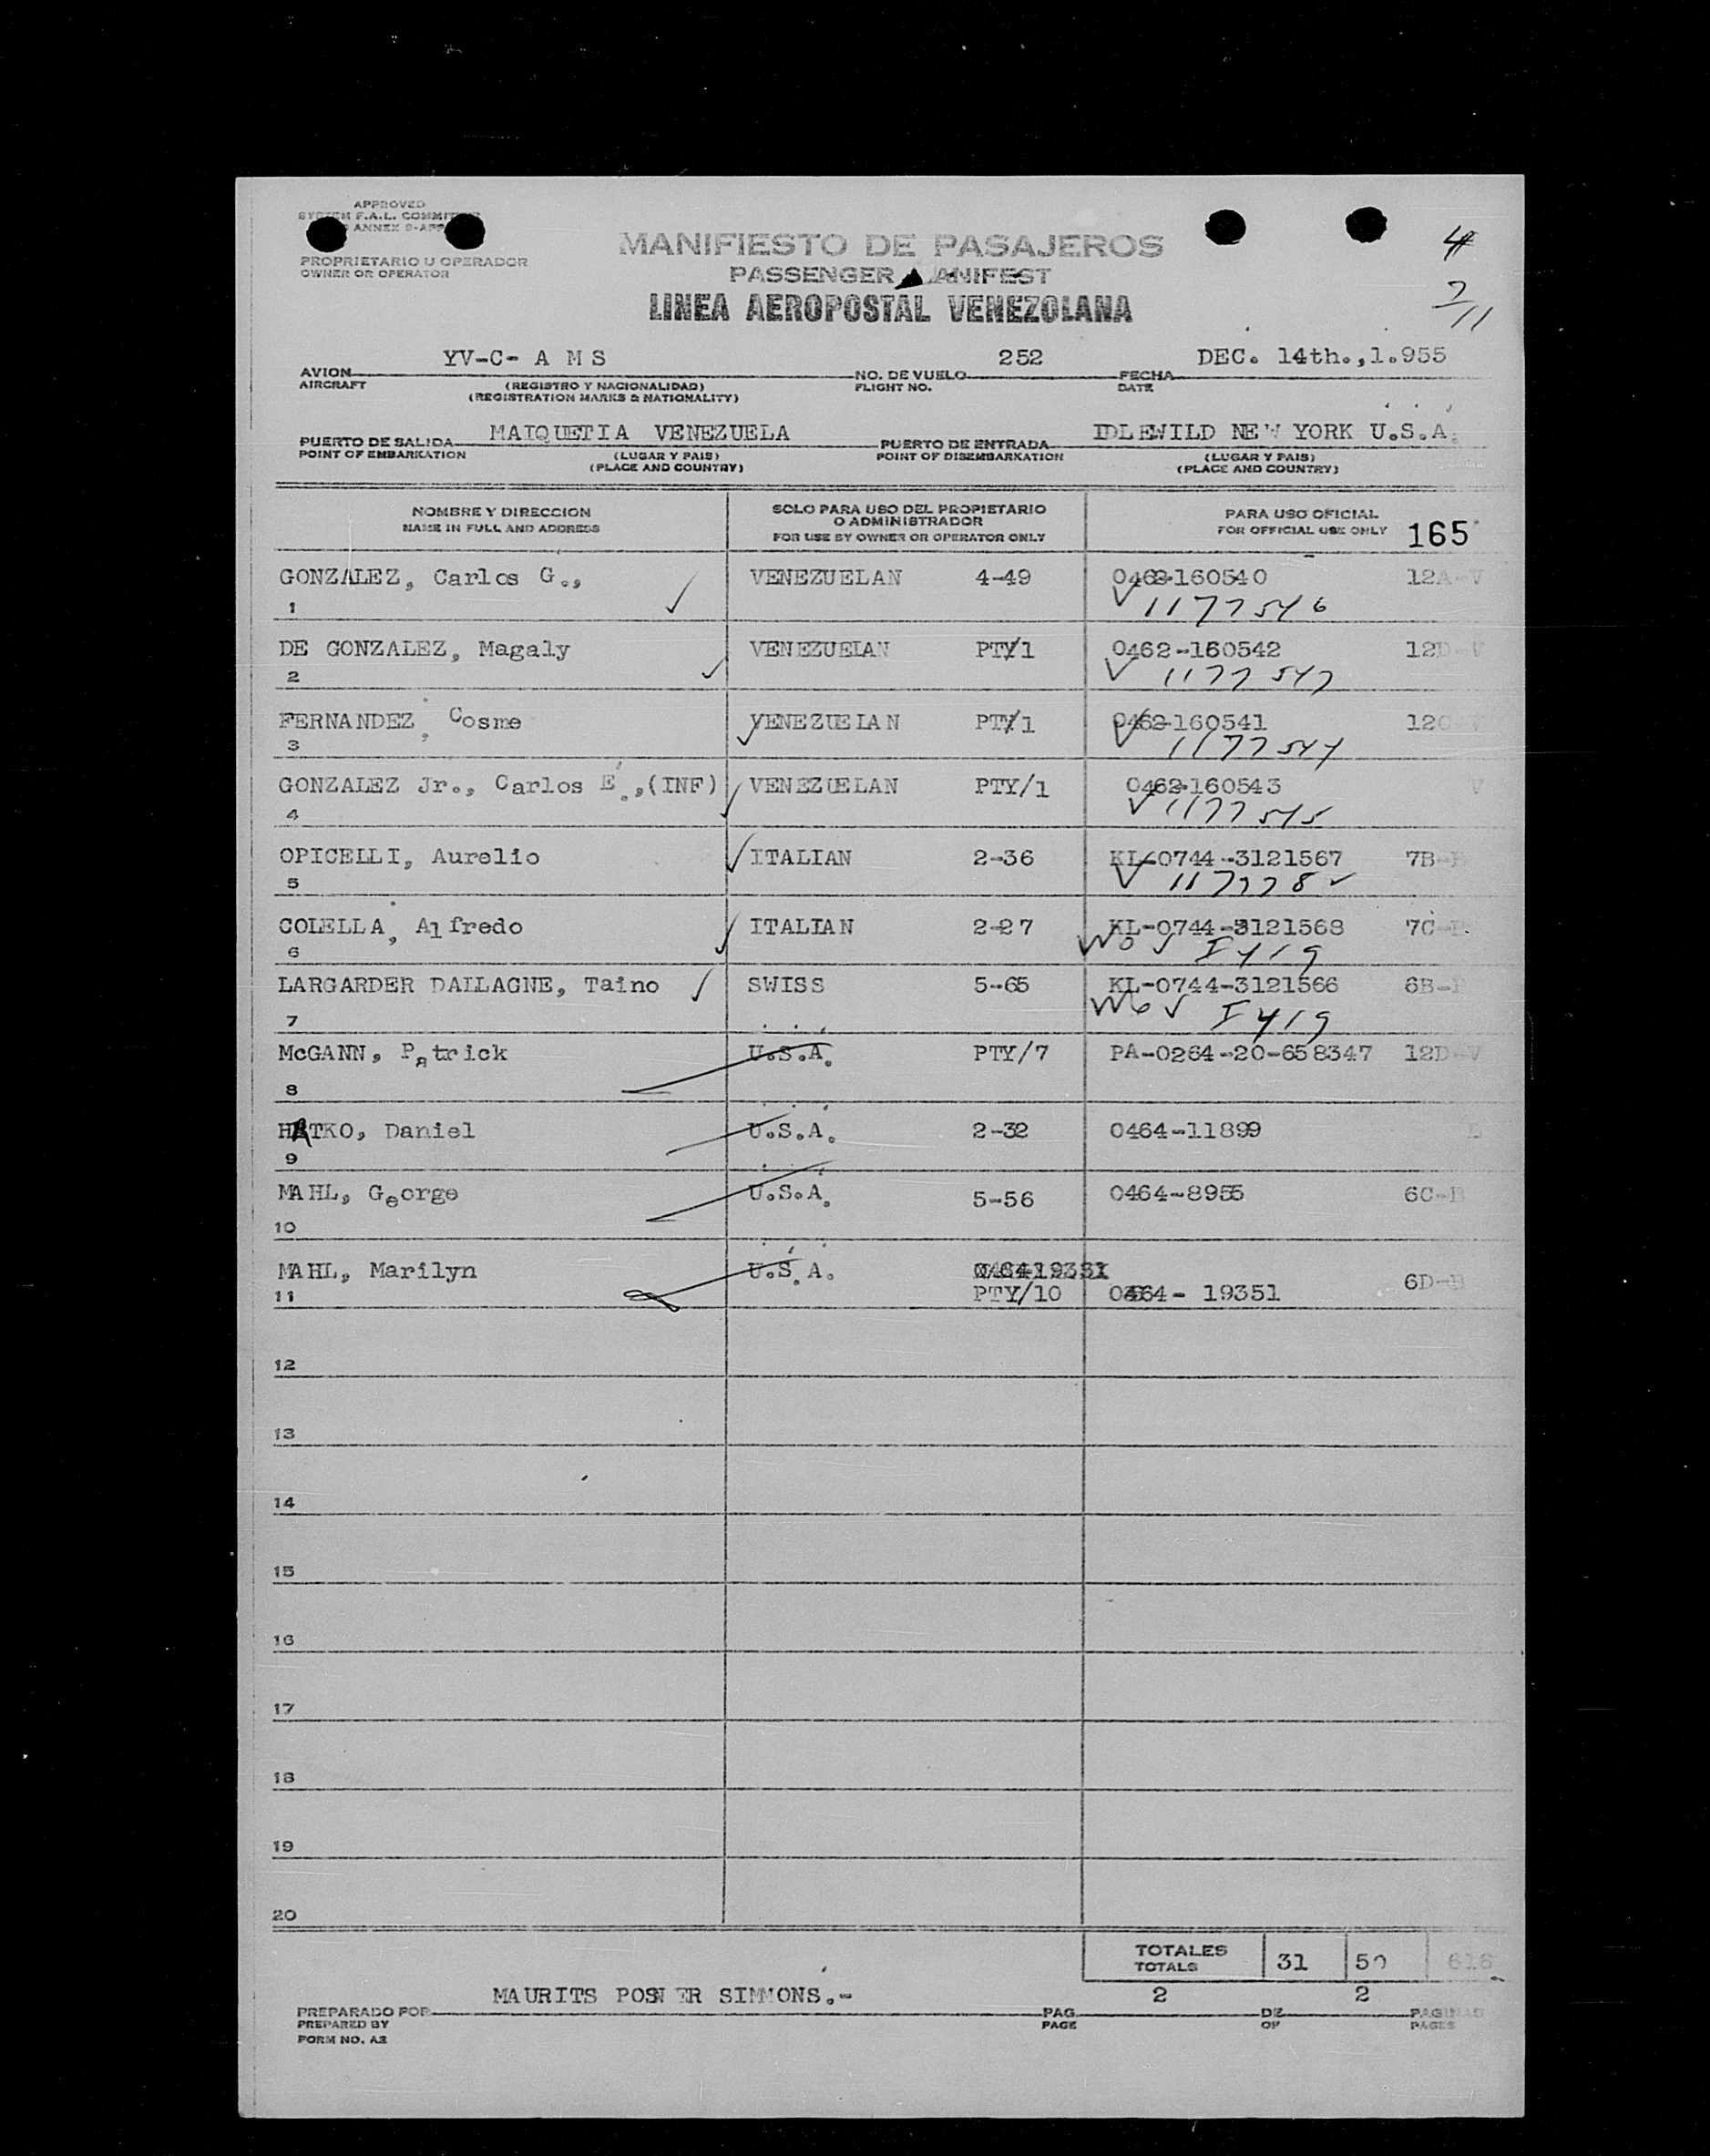 APPROVED
F.A.L.
ANNEX
PROPRIETARIO U OPERADOR
OWNER OR OPERATOR
MANIFIESTO DE PASAJEROS
PASSENGER MANIFEST
LINEA AEROPOSTAL VENEZOLANA
4
7/11
YV-C- A M S 252 DEC. 14th.,1.955
AVION NO. DE VUELO FECHA
AIRCRAFT (REGISTRO Y NACIONALIDAD) FLIGHT NO. DATE
(REGISTRATION MARKS & NATIONALITY)
MAIQUETIA VENEZUELA IDLEWILD NEW YORK U.S.A.
PUERTO DE SALIDA PUERTO DE ENTRADA
POINT OF EMBARKATION (LUGAR Y PAIS) POINT OF DISEMBARKATION (LUGAR Y PAIS)
(PLACE AND COUNTRY) (PLACE AND COUNTRY)
NOMBRE Y DIRECCION SOLO PARA USO DEL PROPIETARIO PARA USO OFICIAL
NAME IN FULL AND ADDRESS O ADMINISTRADOR FOR OFFICIAL USE ONLY 165
FOR USE BY OWNER OR OPERATOR ONLY
GONZALEZ, Carlos G., VENEZUELAN 4-49 0462-160540 12A-V
1 V 1177546
DE GONZALEZ, Magaly VENEZUELAN PTY/1 0462-160542 12D-V
2 V 1177547
FERNANDEZ, Cosme VENEZUELAN PTY/1 0462-160541 12C-V
3 V 1177544
GONZALEZ Jr., Carlos E.,(INF) VENEZUELAN PTY/1 0462-160543 V
4 V 1177545
OPICELLI, Aurelio ITALIAN 2-36 KL-0744-3121567 7B-
5 V 117778
COLELLA, Alfredo ITALIAN 2-27 KL-0744-3121568 7C-
6 I 419
LARGARDER DALLAGNE, Taino SWISS 5-65 KL-0744-3121566 6B-
7 I 419
McGANN, Patrick U.S.A. PTY/7 PA-0264-20-658347 12D-V
8
HATKO, Daniel U.S.A. 2-32 0464-11899
9
MAHL, George U.S.A. 5-56 0464-8955 6C-B
10
MAHL, Marilyn U.S.A. 0464-19351 6D-B
11 PTY/10 0464- 19351
12
13
14
15
16
17
18
19
20
TOTALES 31 50 616
TOTALS
MAURITS POSNER SIMMONS.- 2 2
PREPARADO POR PAG. DE PAGINAS
PREPARED BY PAGE OF PAGES
FORM NO. A2